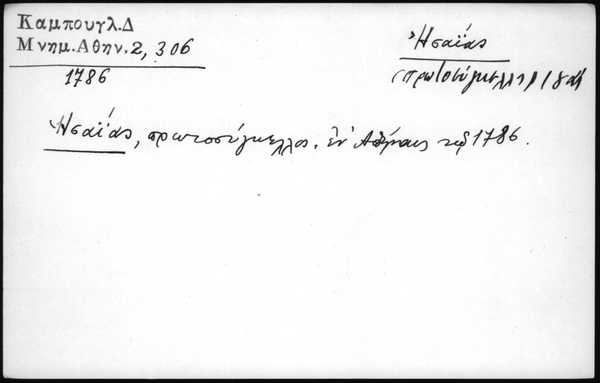 Καμπουγλ.Δ
Μνημ.Αθην.2, 306
1786
Ἠσαΐας
(πρωτοσύγκελλος)
Ἠσαΐας, πρωτοσύγκελλος. ἐν Ἀθήναις τῷ 1786.